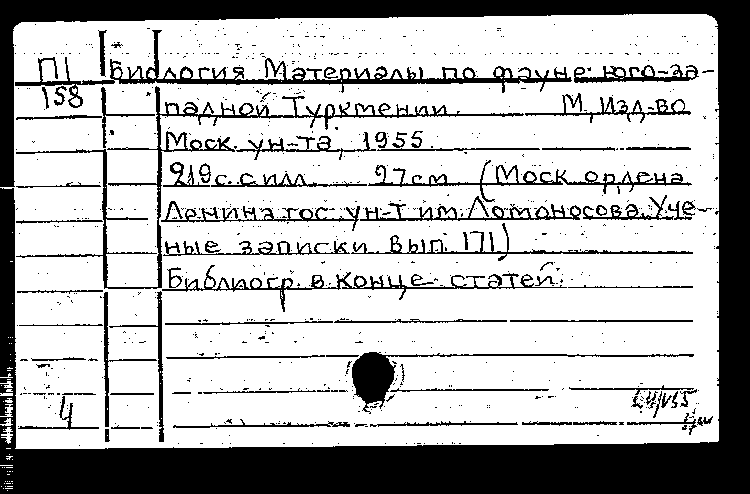 П1 Биология Материалы по фауне юго-за-
158 падной Туркмении. М, Изд-во
Моск. ун-та, 1955.
219с.силл. 27см (Моск ордена
Ленина гос ун-т им. Ломоносова. Уче-
ные записки вып. 171)
Библиогр. в конце статей.
4